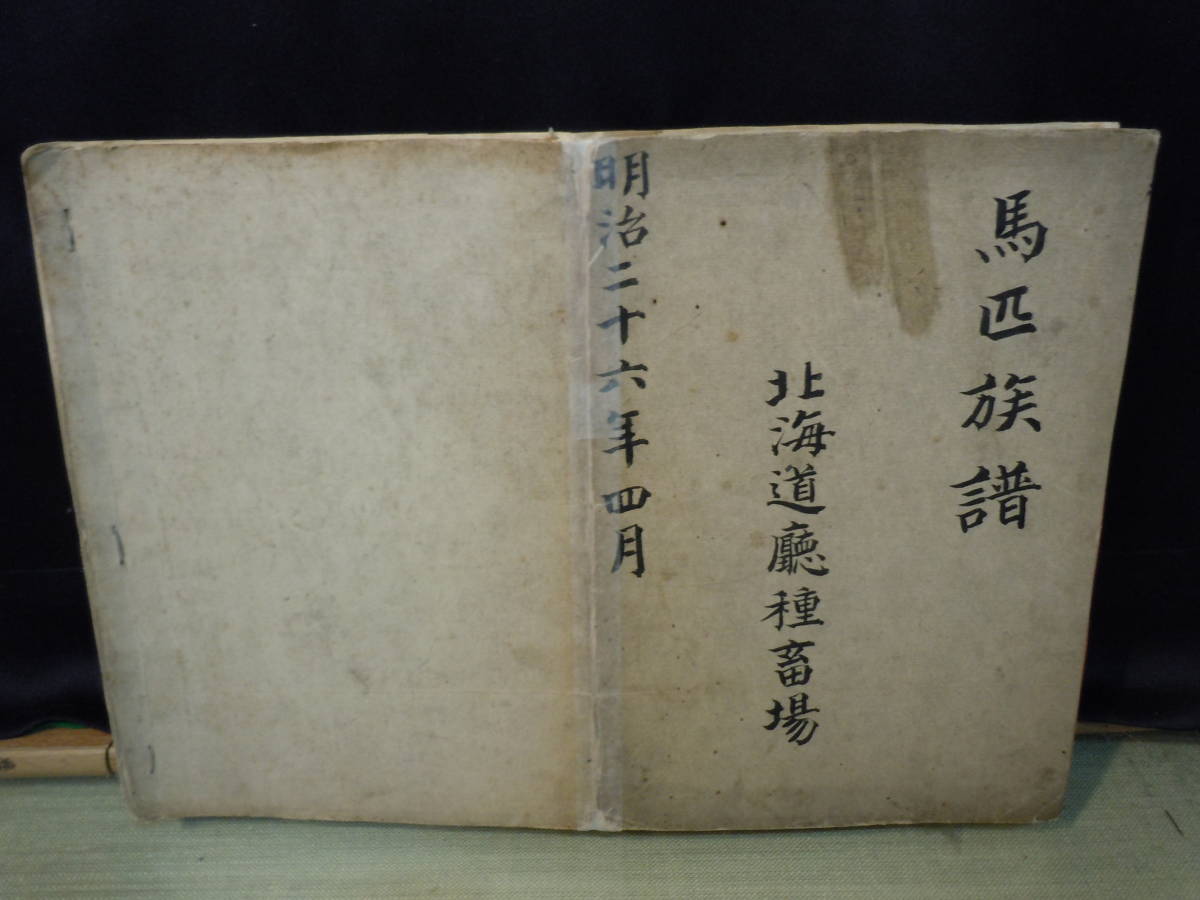 馬匹族譜
北海道廳種畜場
明治二十六年四月